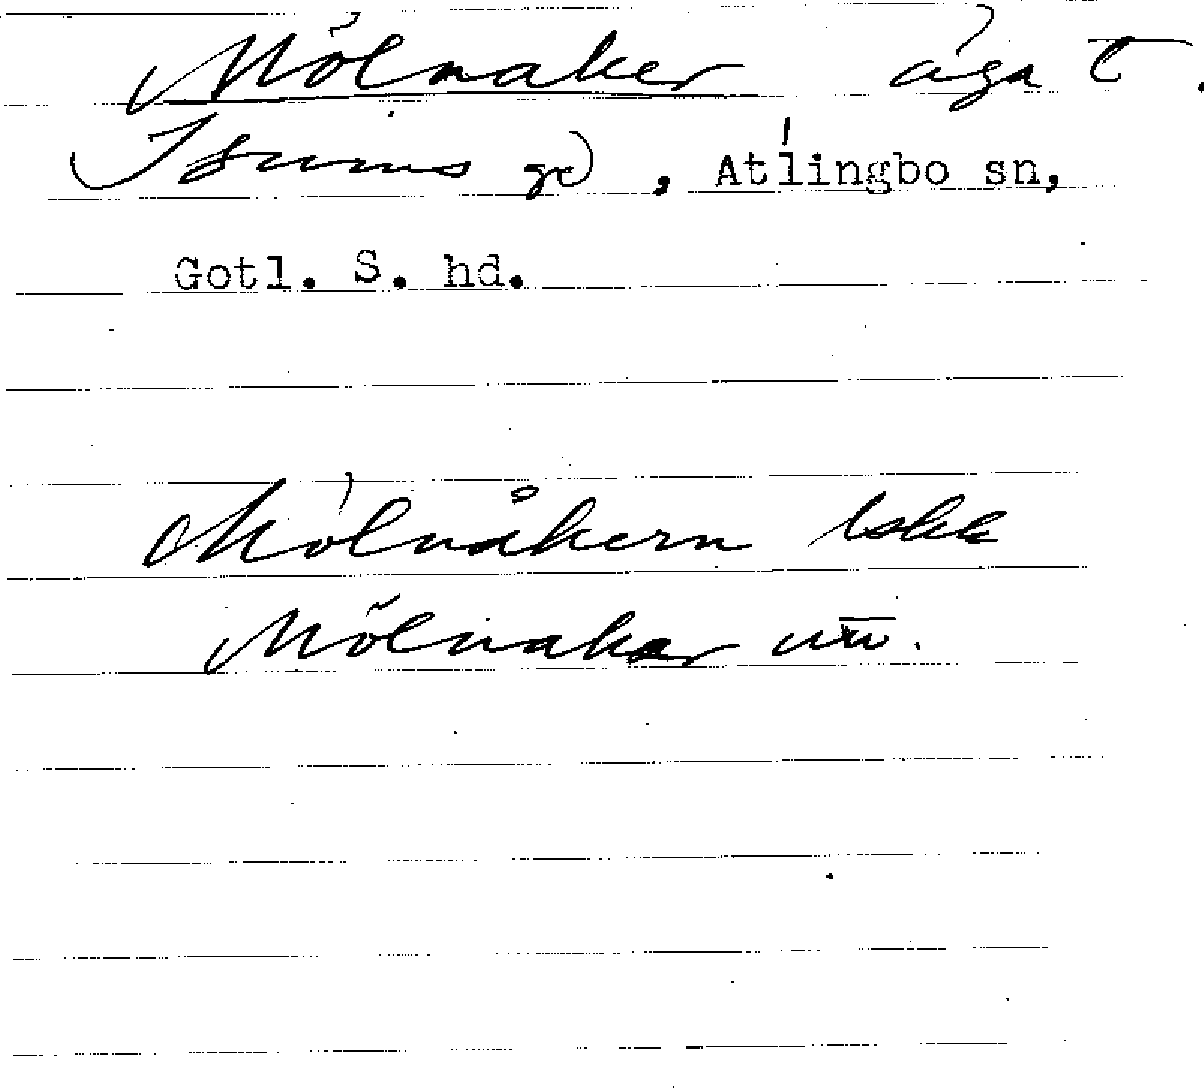 Mölnaker äga t.
Isums gd, Atlingbo sn,
Gotl. S. hd.
Mölnåkern lskk
Mölnakar utt.